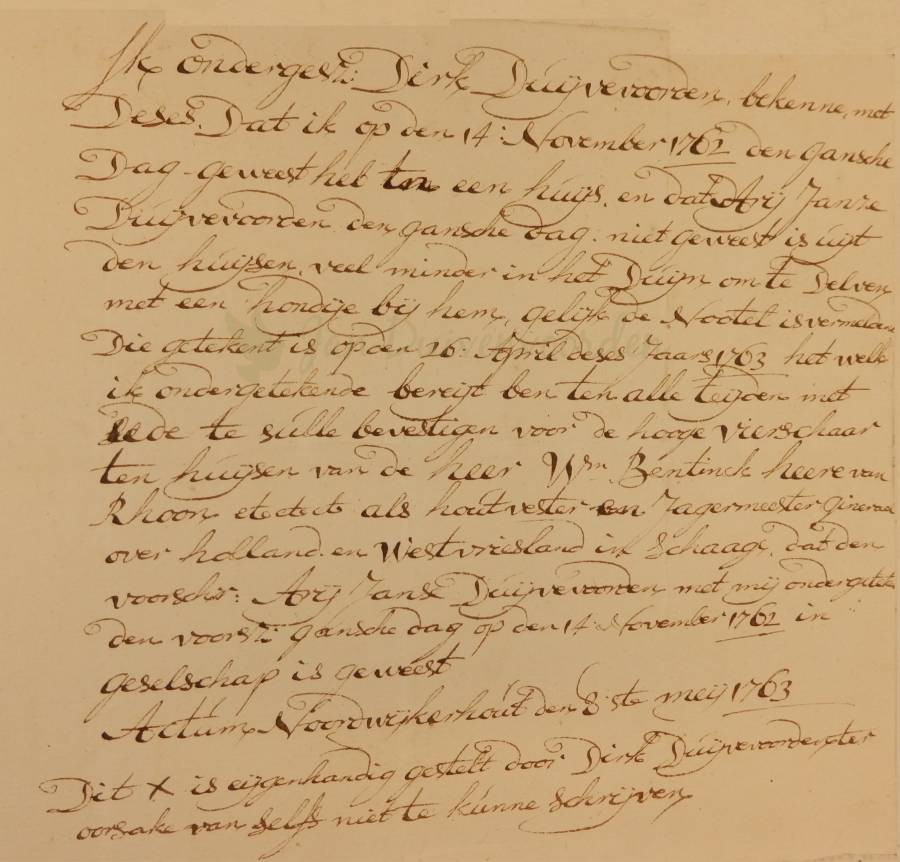 Ik ondergest: Dirk Duijvevoorden, bekenne, met
Deses. Dat ik op den 14: November 1762 den gansche
Dag geweest heb in een huijs. en dat Arij Janse
Duijvevoorden den gansche dag. niet geweest is uijt
den huijsen, veel minder in het Duijn om te Delven
met een hondije bij hem, gelijk de Nootel is vermelden
Die getekent is op den 26: April deses Jaars 1763 het welk
ik ondergetekende bereijt ben ten alle teijden met
Eede te sulle bevestigen voor de hooge vierschaar
ten huijsen van de heer Wm Bentinck heere van
Rhoon etectectc als houtvester en Jagermeester Gineraal
over holland en Westvriesland in S'haage, dat den
voorschr: Arij Janse Duijvevoorden met mij ondergetek
den voorst: gansche dag op den 14: November 1762 in
geselschap is geweest
Actum Noordwijkerhout den 8ste meij 1763
Dit X is eijgenhandig gestelt door Dirk Duijvevoorden ter
oorsake van selfs niet te kunne schrijven